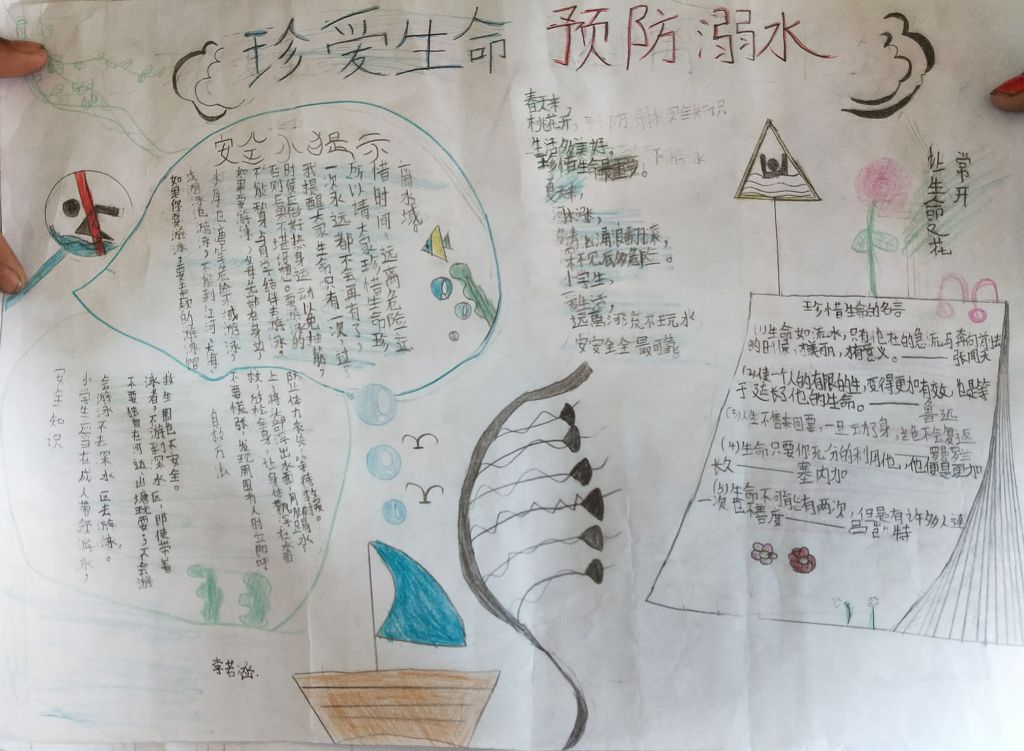 珍爱生命 预防溺水
安全小提示
离水域。
惜时间,远离危险
所以请大家珍惜生命珍
一次永远都不会再有了,
我提醒大家生命只有一次,过
时候后做好热身运动以免抽筋,
否则后果不堪设想。要游泳的
不能独自与同学结伴去游泳。
如果要游泳,父母先部在身边,
水库池塘等危险水域游泳,
如果你要游泳,要去正规的游泳馆
春天来,
桃花开,
生活多美好,
珍惜生命最重要。
夏天来,
河水涨,
深不见底多危险。
小学生,
爱生活,
远离河流不玩水
安安全全最可靠
常开
让生命之花
珍惜生命的名言
(1)生命如流水,只有他在的急流与奔向前去
的时候,才美丽,才有意义。——张闻天
(2)使一个人的有限的生,变得更加有效,也是等
于延长他的生命。——鲁迅
(3)人生不售来回票,一旦动了身,绝不会复返
——罗曼罗兰
(4)生命只要你充分的利用他,他便是更加
长久——塞内加
(5)生命不可能有两次,但是有许多人连
一次也不善度——吕凯特
自救方法
不要慌张,发现周围有人时立即呼
放松全身,让身体飘浮在水面
上,将头部浮出水面,用脚踢水
防止体力丧失,等待救援。
安全知识
小学生应当在成人带领游泳,
会游泳不去深水区去游泳。
不要独自在河边山塘玩耍,不会游
泳者,不游到深水区,即使带着
救生圈也不安全。
李若涵